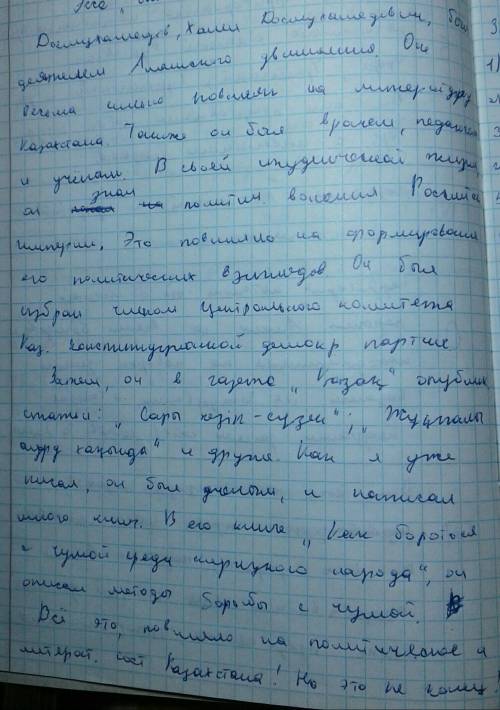 Досмухамедов, Халел Досмухамедович, был
деятелем Алашского движения. Он
весьма сильно повлиял на литературу
Казахстана. Также он был врачем, педагогом
и ученым. В своей студенческой жизни,
он знал политич волнения Российск
империи. Это повлияло на формирования
его политических взглядов Он был
избран членом Центрального комитета
Каз. конституционной демокр партие
Затем, он в газете „Қазақ“ опублик
статьи: „Сары кезік - сүзек“; „Жұқпалы
ауру хақында“ и другие. Как я уже
писал, он был ученым, и написал
много книг. В его книге „Как бороться
с чумой среди киргизкого народа“, он
описал методы борьбы с чумой.
Всё это, повлияло на политическое и
литерат. сост Казахстана! Но это не конец!